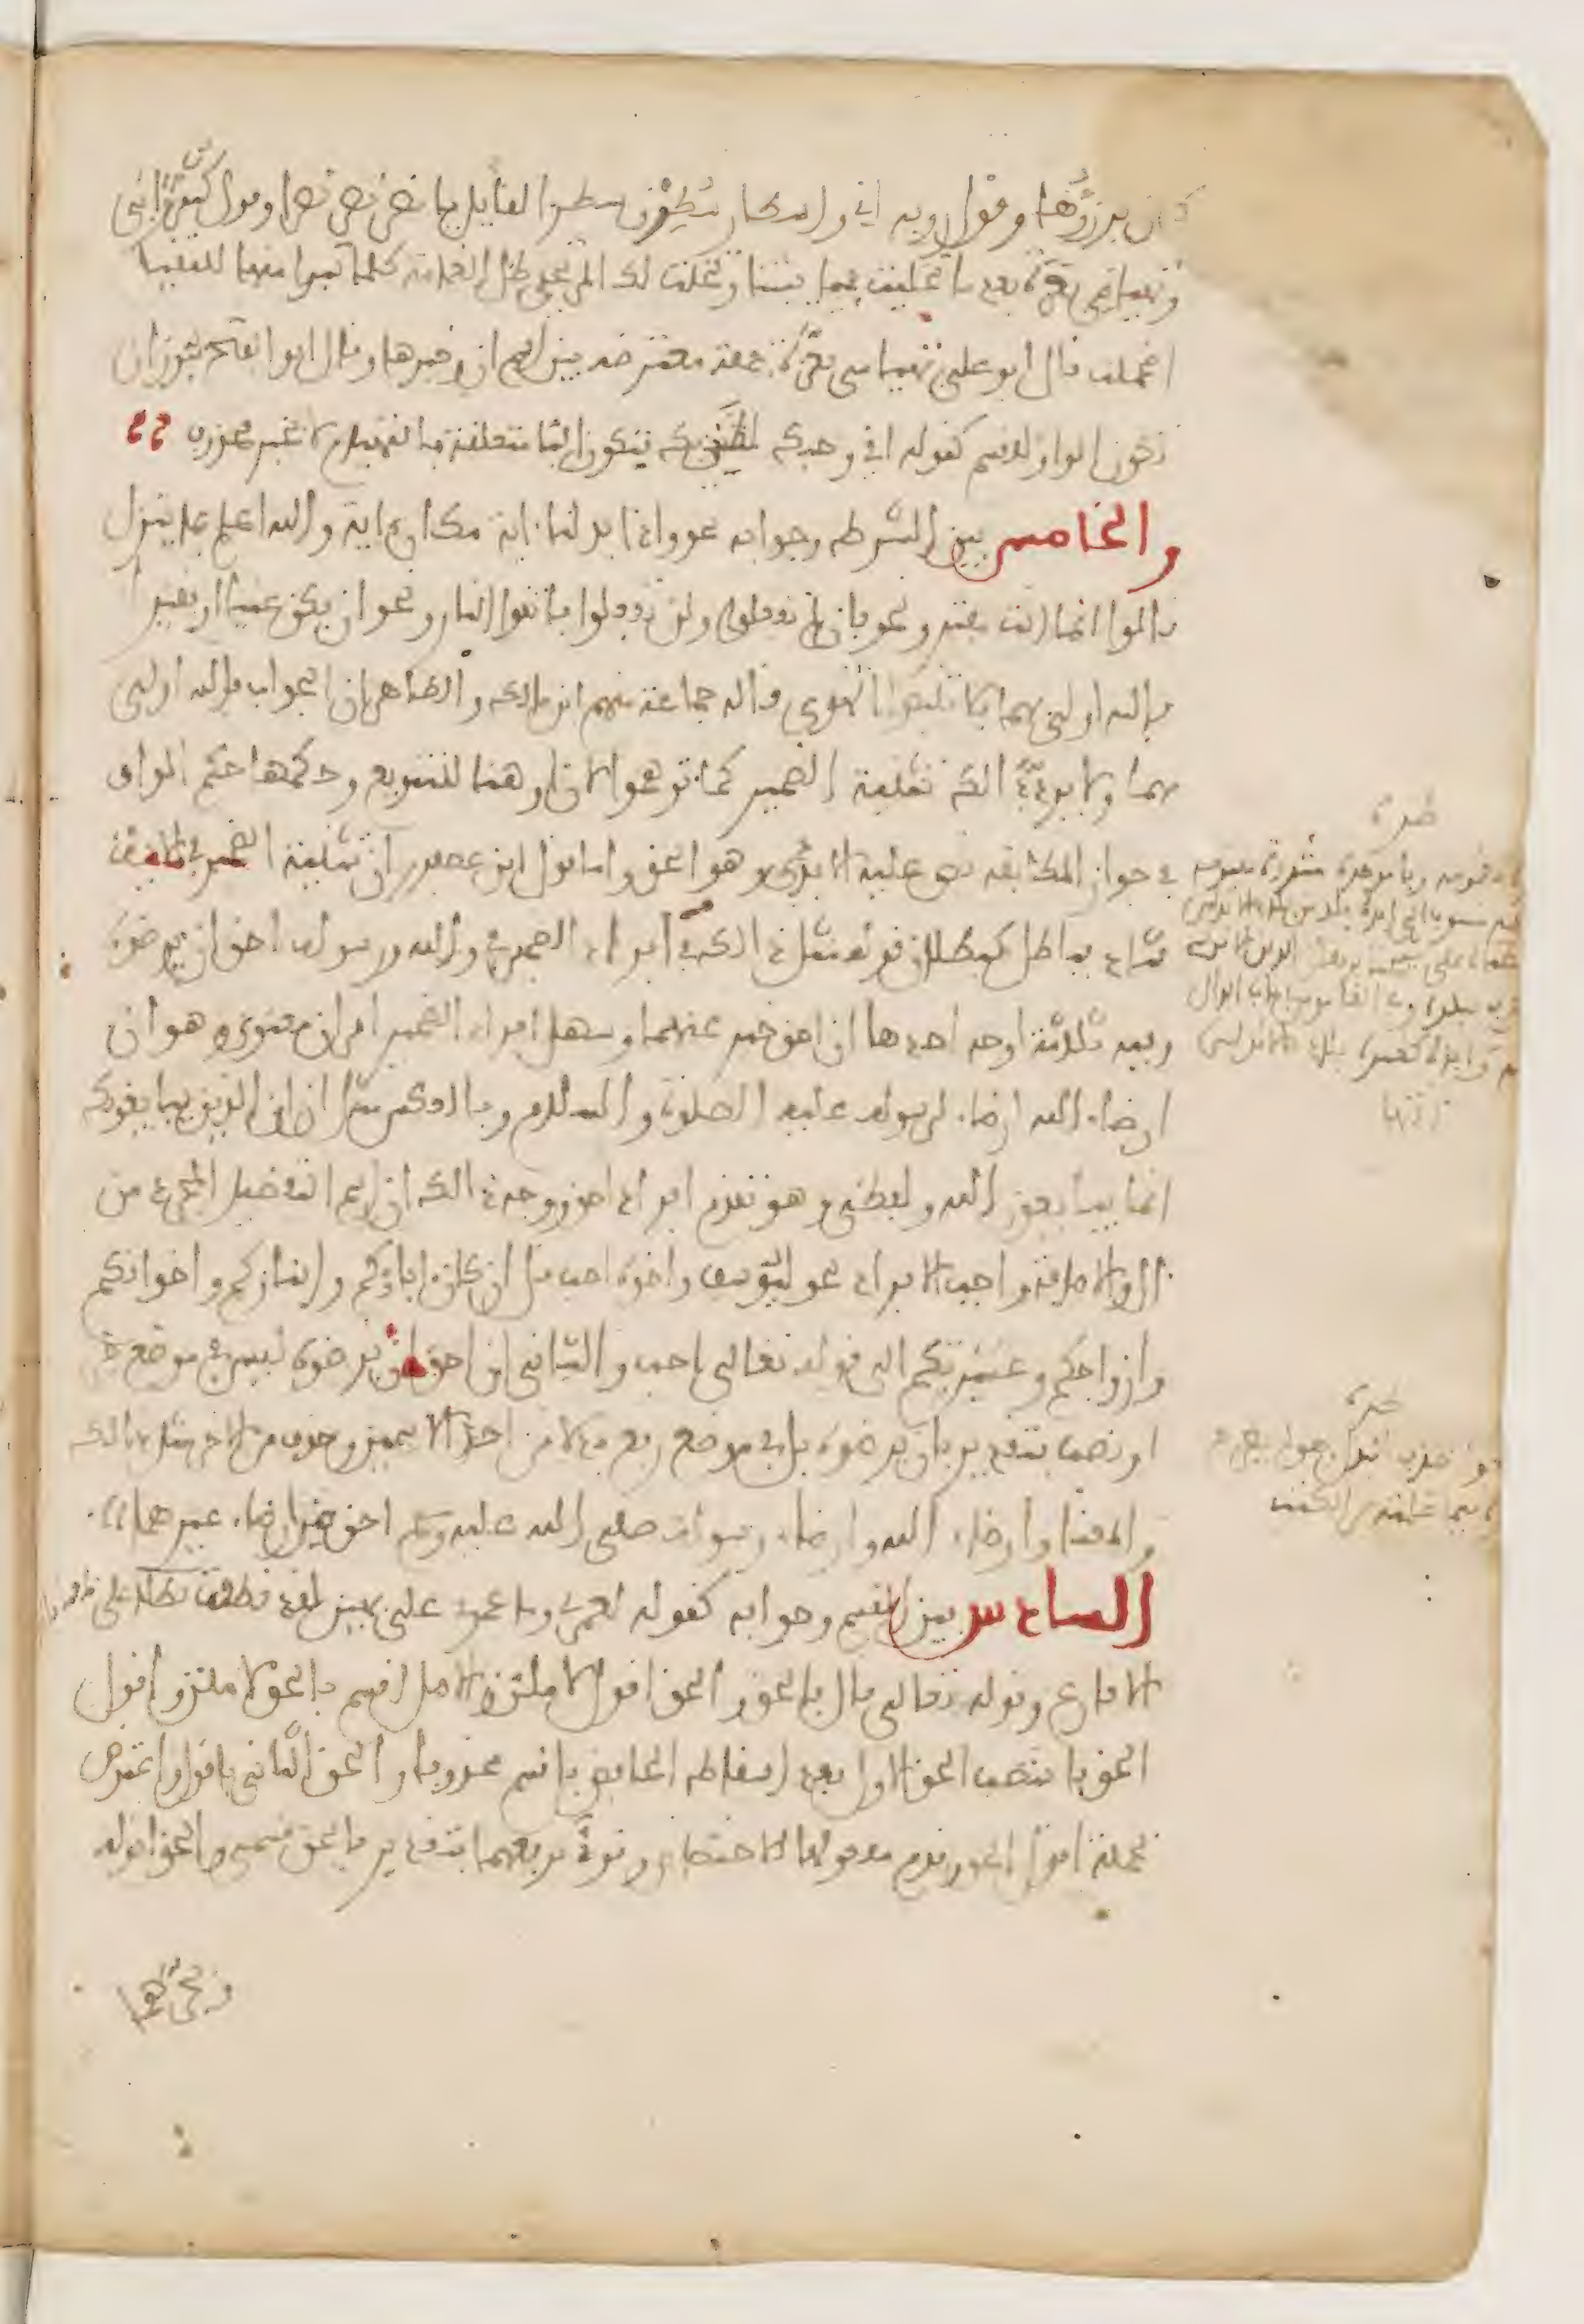 يرزؤها وقول رؤبة اني واسطار سطرن سطرا لقايل يا نصر نصر نصرا وقول كثير واني
وتهيامي بعزة بعد ما تخليت مما بيننا وتخلت لك المرتجي ظل الغمامة كلما تبوا منها للمقيل
اضمحلت قال ابو علي تهيامي بعزة جملة معترضة بين اسم ان وخبرها وقال ابو الفتح يجوز ان
تكون الواو للقسم كقوله اني وحبك لضنين بك فتكون البا متعلقة بالتهيام لا بخبر محذوف
والخامس بين الشرط وجوابه نحو واذا بدلنا اية مكان اية والله اعلم بما ينزل
قالوا انما انت مفتر ونحو فان لم تفعلوا ولن تفعلوا فاتقوا النار ونحو ان يكن غنيا او فقيرا
فالله اولى بهما فلا تتبعوا الهوى قاله جماعة منهم ابن مالك والظاهر ان الجواب فالله اولى
بهما ولا يرد ذلك تثنية الضمير كما توهموا لان او هنا للتنويع وحكمها حكم الواو
في جواز المطابقة نص عليه الابذي وهو الحق واما قول ابن عصفور ان تثنية الضمير في الاية
شاذ فباطل كبطلان قوله مثل ذلك في افراد الضمير في والله ورسوله احق ان يرضوه
وفيه ثلاثة اوجه احدها ان احق خبر عنهما وسهل افراد الضمير امران معنوي وهو ان
ارضاء الله ارضاء لرسوله عليه الصلوة والسلام وبالعكس ان الذين يبايعونك
انما يبايعون الله ولفظي وهو تقدم افراد احق ووجه ذلك ان اسم التفضيل المجرد من
ال والاضافة واجب الافراد نحو ليوسف واخوه احب قل ان كان اباؤكم وابناؤكم واخوانكم
وازواجكم وعشيرتكم الى قوله تعالى احب والثاني ان احق ان يرضوه ليس في موضع جر
او نصب بتقدير بان يرضوه بل في موضع رفع بدلا من احد الاسمين وحذف من الاخر مثل ذلك
والمعنى وارضاء الله وارضاء رسوله صلى الله عليه وسلم احق من ارضاء غيرهما
السادس بين القسم وجوابه كقوله لعمري وما عمري علي بهين لقد نطقت بطلا علي
الاقارع وقوله تعالى قال فالحق والحق اقول لاملئن الاصل اقسم بالحق لاملئن واقول
الحق فانتصب الحق الاول بعد اسقاط الخافض باقسم محذوفا والحق الثاني باقول واعترض
بجملة اقول الحق وقدم معمولها للاختصاص وقرئ برفعهما بتقدير فالحق قسمي والحق اقوله
طرة
طرة